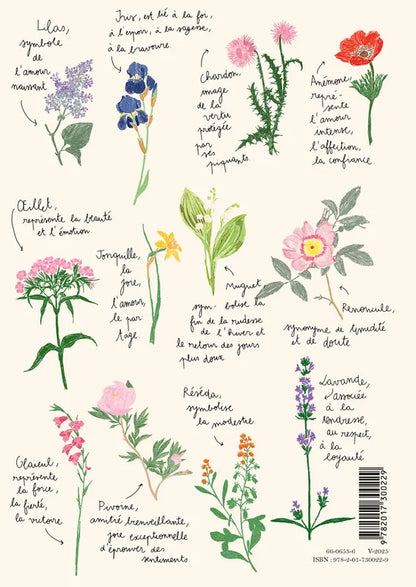 Lilas,
symbole
de
l'amour
naissant
Iris, est lié à la foi,
à l'espoir, à la sagesse,
à la bravoure.
Chardon,
image
de la
vertu
protégée
par
ses
piquants.
Anémone,
repré-
sente
l'amour
intense,
l'affection,
la confiance.
Œillet,
représente la beauté
et l'émotion
Jonquille,
la
joie,
l'amour,
le par-
tage.
Muguet
sym- bolise la
fin de la rudesse
de l'hiver et
le retour des jours
plus doux
Renoncule,
synonyme de timidité
et de doute
Glaïeul,
représente
la force,
la fierté,
la victoire
Pivoine,
amitié bienveillante,
joie exceptionnelle
d'éprouver des
sentiments
Réséda,
symbolise
la modestie
Lavande,
associée
à la
tendresse,
au respect,
à la
loyauté
9782017300229
66-0653-6 V-2025
ISBN : 978-2-01-730022-9